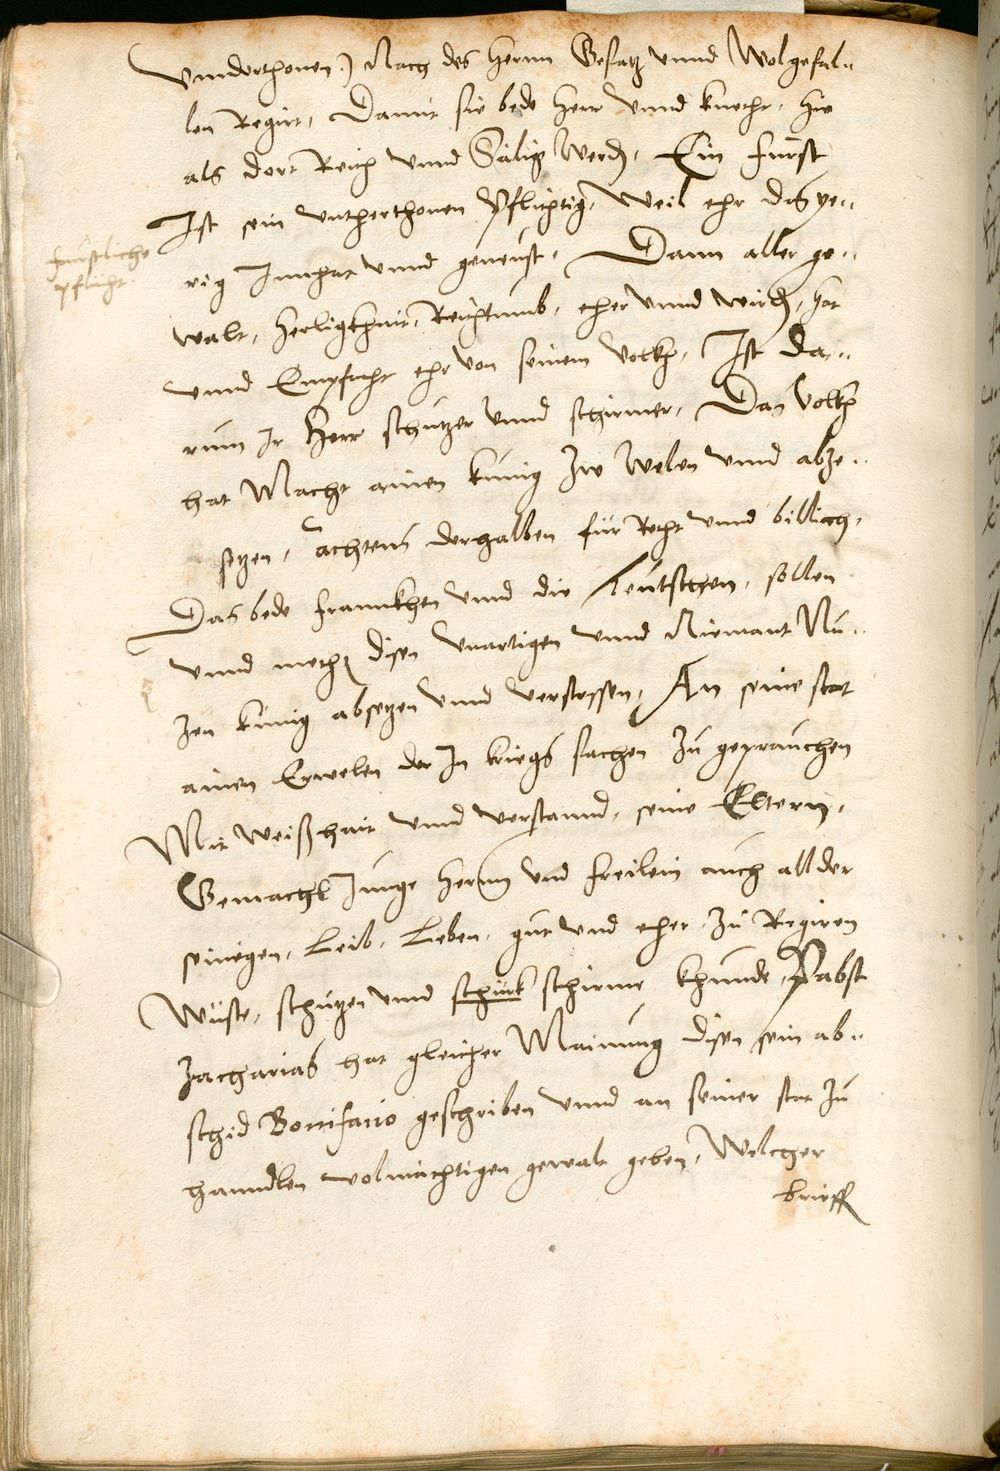 Vnnderthonen.) Nach des herrn Gesatz vnnd Wolgefal„
len Regirt, Damit sie bede herr vnnd knecht, hie
als dort Reich vnnd Sälig Werd, Ein fürst
Ist sein vntherthonen Pflichtig, Weil ehr das ye„
fürstliche
pflicht.
rig Innhat vnnd geneust, Dann aller ge„
walt, herligkhait, Reichtumb, eher vnnd wird, hat
vnnd Empfecht ehr von seinem Volkh, Ist da„
rum Ir Herr schutzer vnnd schirmer, Das Volkh
hat Macht ainen künig Zw Welen vnnd abze„
setzen, achtens derhalben für Recht vnnd billich,
Das bede frannkhen vnnd die Teutschen, sollen
vnnd mechtz disen vnartigen vnnd Niemant Nu„
zen künig absetzen vnnd verstossen, An seine stat
ainen Erwelen der In kriegs sachen Zu geprauchen
Mit weißhait vnnd verstannd, seine Eltern,
Gemachl Junge herrn vnd freilein auch all der
seinigen, Leib, Leben, gut vnd eher, Zu Regiren
Wüste, schutzen vnnd schürk schirme khunde, Pabst
Zacharias hat gleicher Mainung disen sein ab„
schid Bonifacio geschriben vnnd an seiner stat Zu
hanndlen volmächtigen gewalt geben, Welcher
brieff